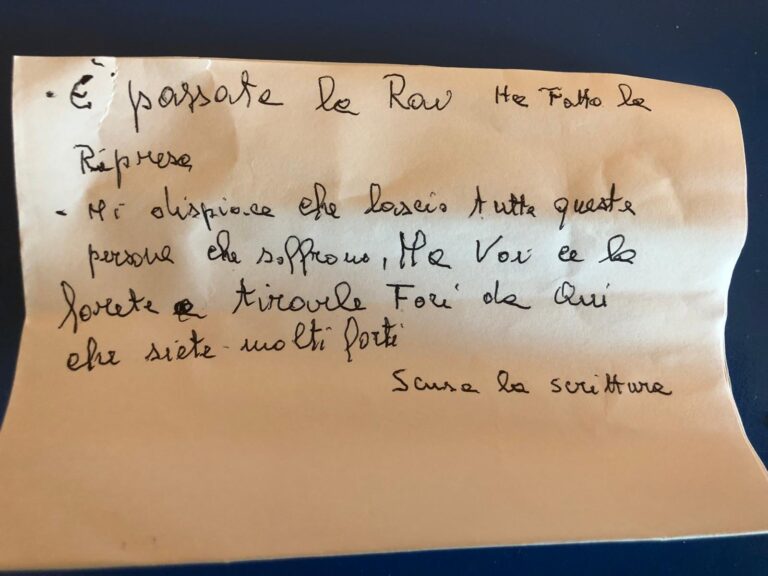 · È passata la Rai Ha Fatto le
Riprese
- Mi dispiace che lascio tutte queste
persone che soffrono, Ma Voi ce la
farete a tirarle Fori da Qui
che siete molti forti
Scusa la scrittura